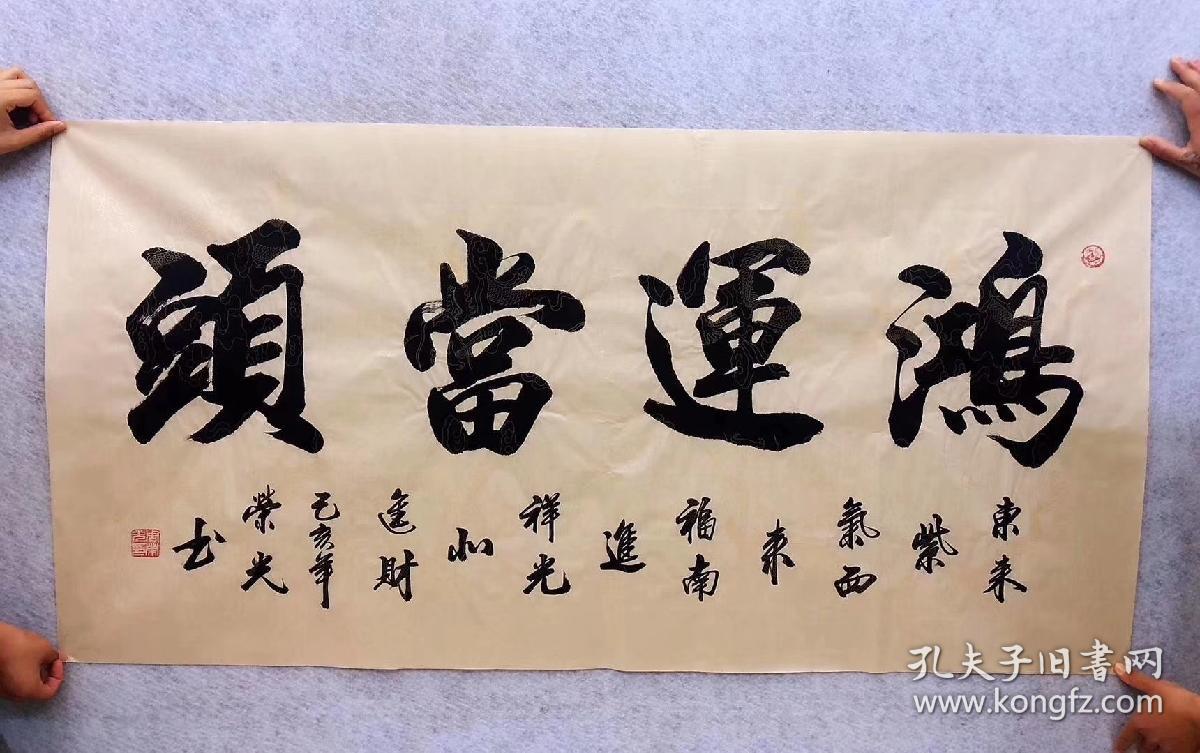 鴻運當頭
東来
紫
氣西
来
福南
進
祥光
北
進財
己亥年
榮光
书
孔夫子旧書网
www.kongfz.com